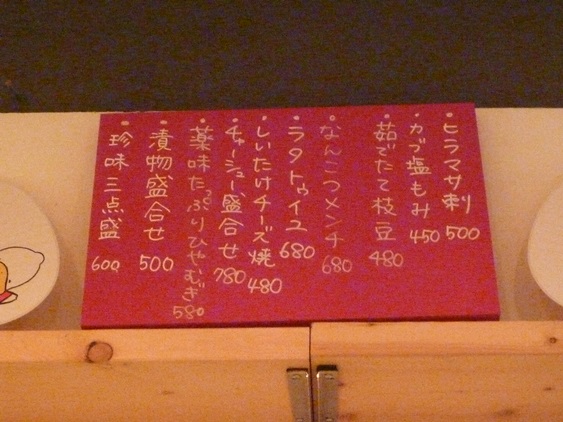 ヒラマサ刺 500
カブ塩もみ 450
茹でたて枝豆 480
なんこつメンチ 680
ラタトゥイユ 680
しいたけチーズ焼 480
チャーシュー盛合せ 780
薬味たっぷりひやむぎ 580
漬物盛合せ 500
珍味三点盛 600